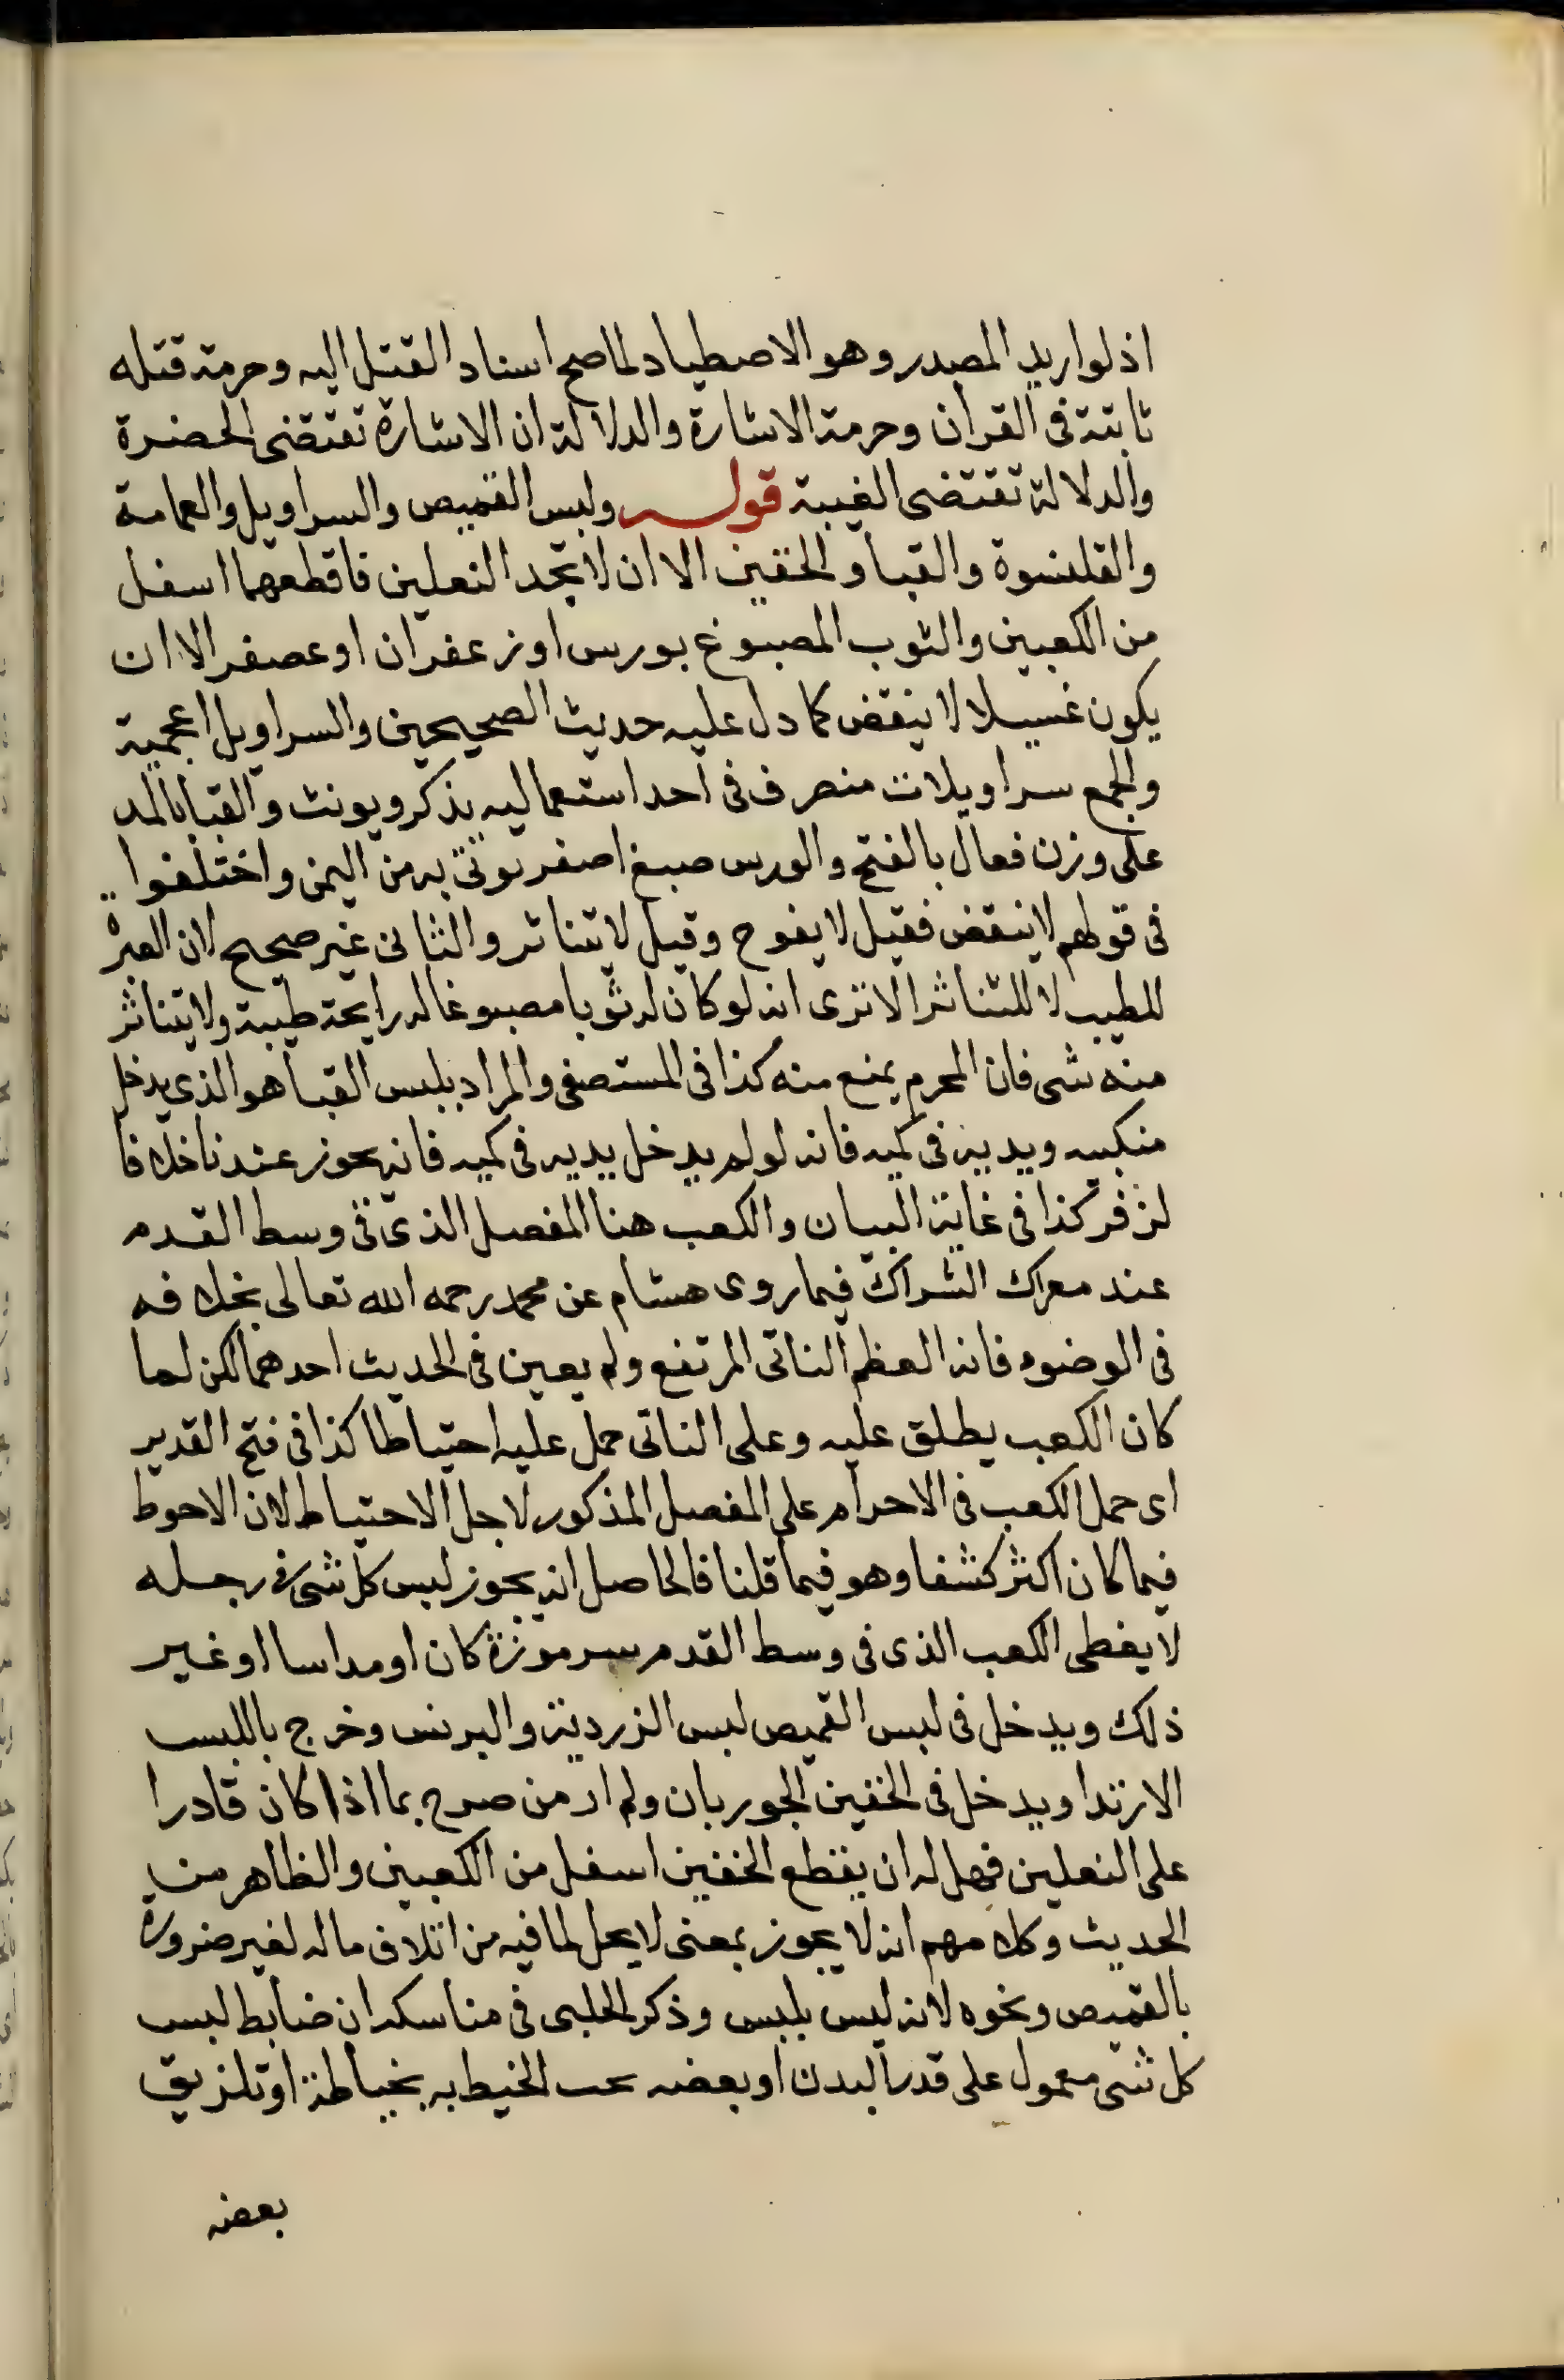 اذ لو اريد المصدر وهو الاصطياد لما صح اسناد القتل اليه وحرمة قتله
ثابتة فى القران وحرمة الاشارة والدلالة ان الاشارة تقتضى الحضرة
والدلالة تقتضى الغيبة قوله ولبس القميص والسراويل والعمامة
والقلنسوة والقبا والخفين الا ان لا تجد النعلين فاقطعهما اسفل
من الكعبين والثوب المصبوغ بورس او زعفران او عصفر الا ان
يكون غسيلا لا ينقض كما دل عليه حديث الصحيحين والسراويل اعجمية
والجمع سراويلات منصرف فى احد استعماليه يذكر ويونث والقبا بالمد
على وزن فعال بالفتح والورس صبغ اصفر يوتى به من اليمن واختلفوا
فى قولهم لا ينقض فقيل لا يفوح وقيل لا يتناثر والثانى غير صحيح لان العبرة
للطيب لا للتناثر الا ترى انه لو كان له ثوبا مصبوغا له رايحة طيبة ولا يتناثر
منه شى فان المحرم يمنع منه كذا فى المستصفى والمراد بلبس القبا هو الذى يدخل
منكبيه ويديه فى كميه فانه لو لم يدخل يديه فى كميه فانه يجوز عندنا خلافا
لزفر كذا فى غاية البيان والكعب هنا المفصل الذى فى وسط القدم
عند معراك الشراك فيما روى هشام عن محمد رحمه الله تعالى بخلافه
فى الوضوء فانه العظم الناتى المرتفع ولم يعين فى الحديث احدهما لكن لما
كان الكعب يطلق عليه وعلى الناتى حمل عليه احتياطا كذا فى فتح القدير
اى حمل الكعب فى الاحرام على المفصل المذكور لاجل الاحتياط لان الاحوط
فيما كان اكثر كشفا وهو فيما قلنا فالحاصل انه يجوز لبس كل شى فى رجله
لا يغطى الكعب الذى فى وسط القدم سرموزة كان او مداسا او غير
ذلك ويدخل فى لبس القميص لبس الزردية والبرنس وخرج باللبس
الارتدا ويدخل فى الخفين الجوربان ولم ار من صرح بما اذا كان قادرا
على النعلين فهل له ان يقطع الخفين اسفل من الكعبين والظاهر من
الحديث وكلامهم انه لا يجوز بمعنى لا يحل لما فيه من اتلاف ماله لغير ضرورة
بالقميص ونحوه لانه ليس بلبس وذكر الحلبى فى مناسكه ان ضابط لبس
كل شى معمول على قدر البدن او بعضه بحيث الخيط به بخياطة او تلزيق
بعضه